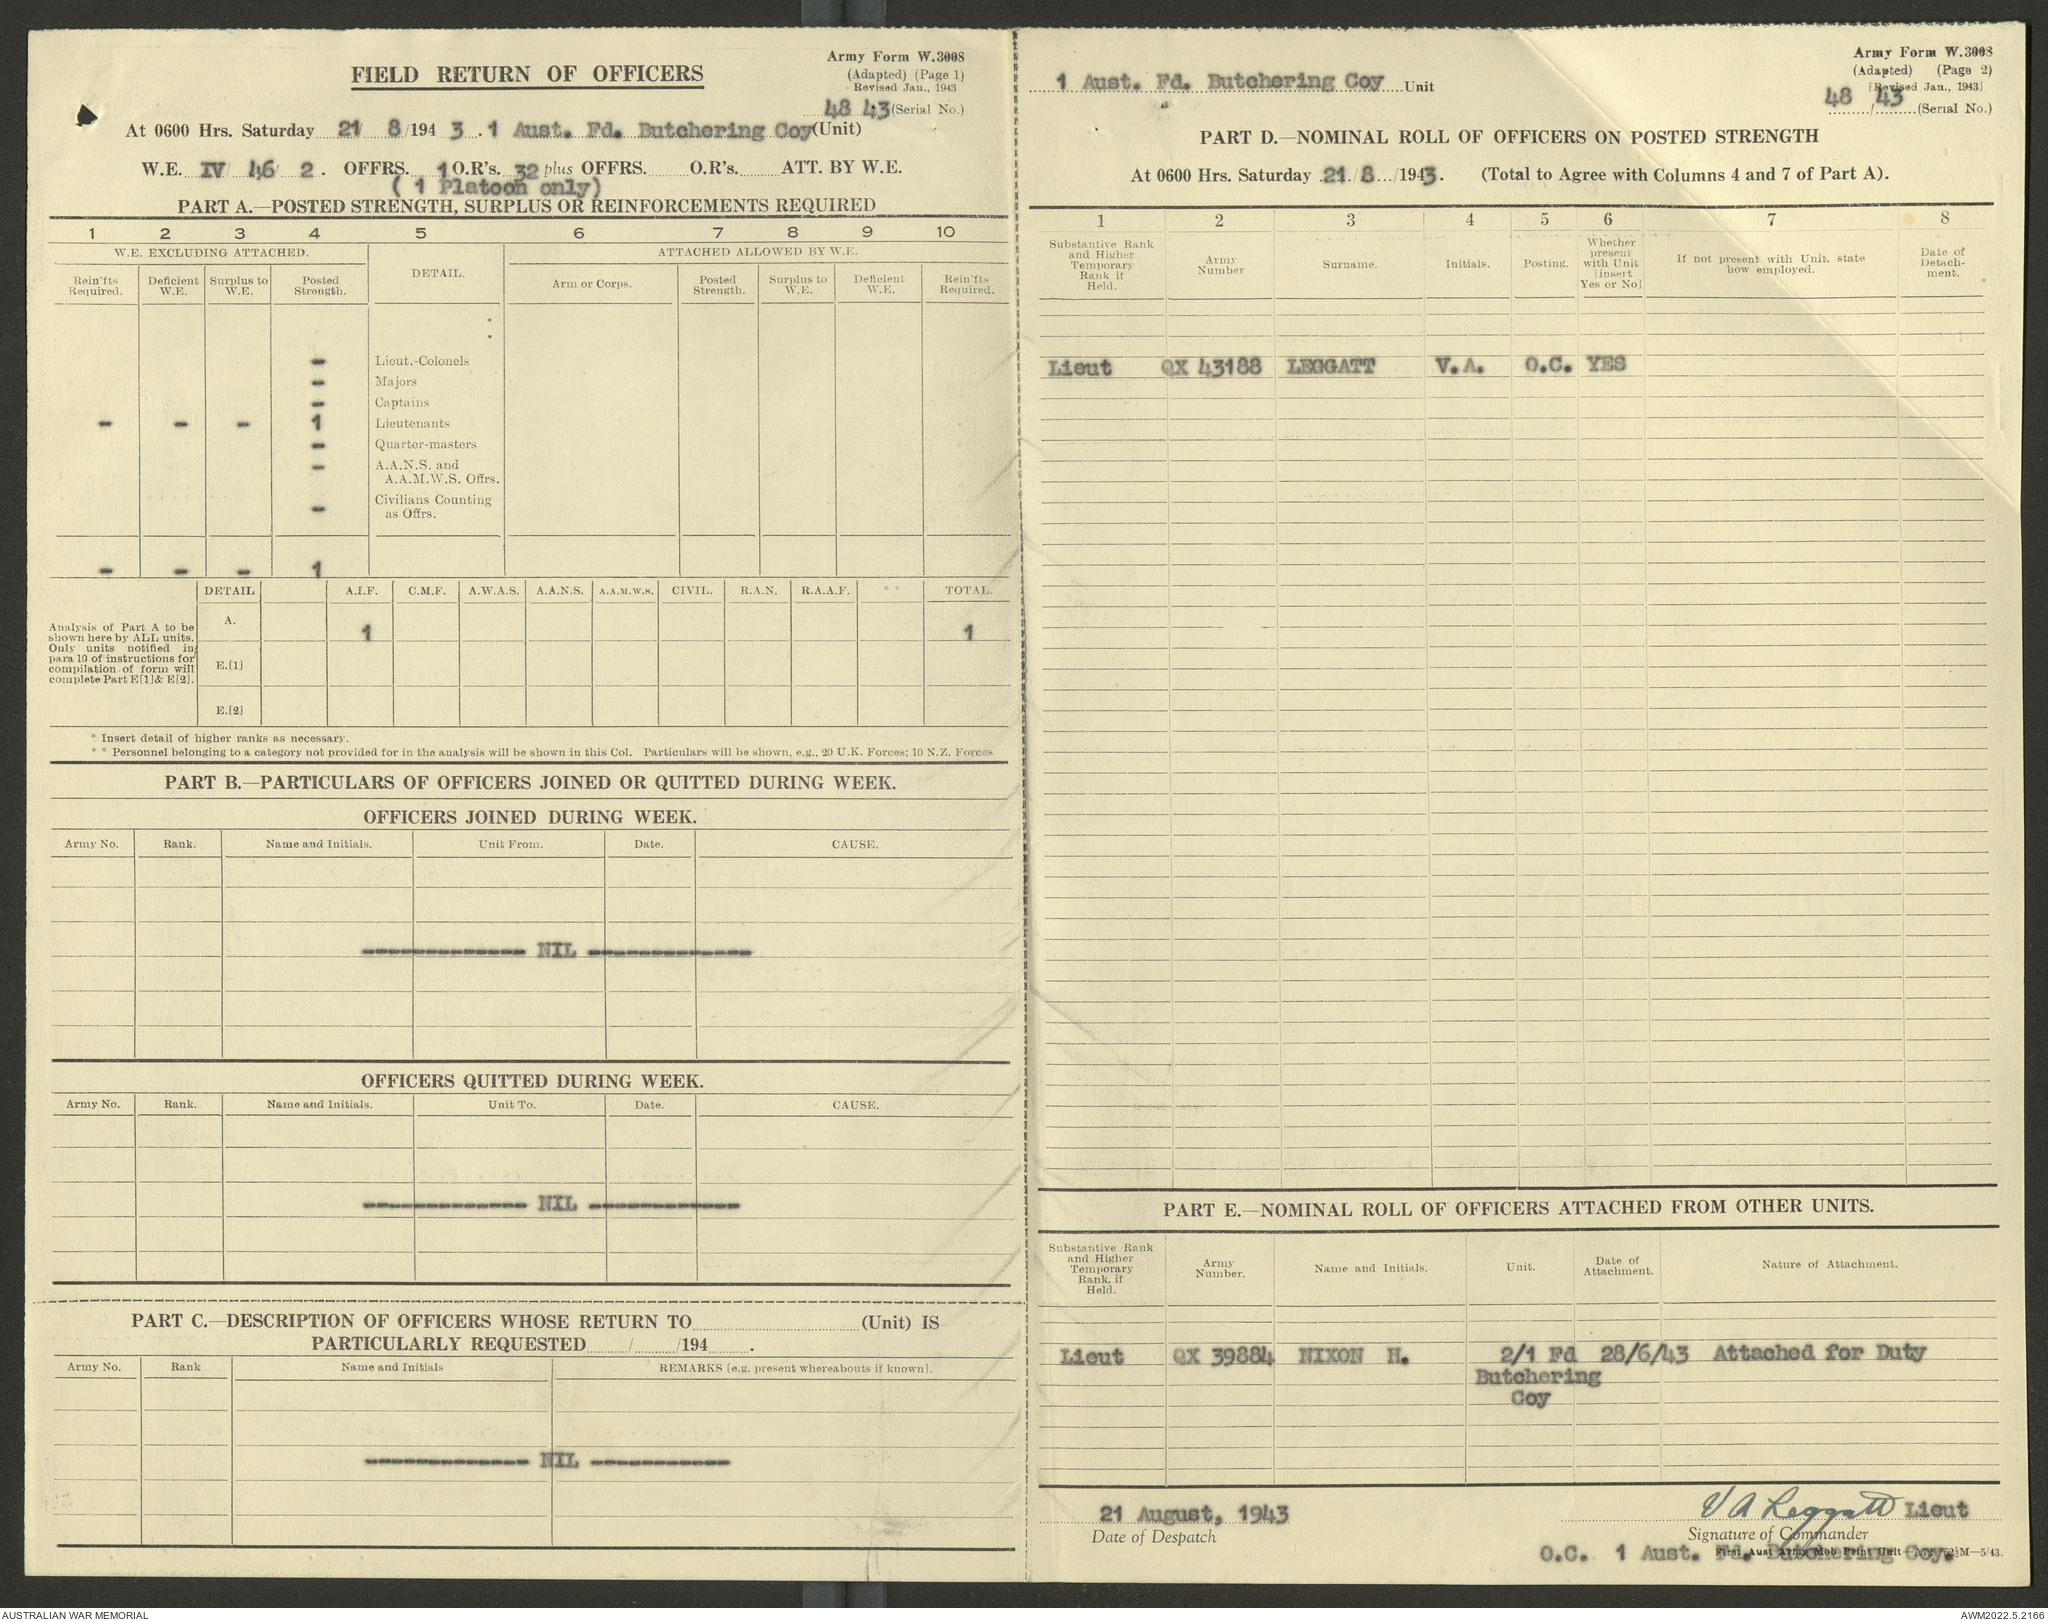 FIELD RETURN OF OFFICERS
Army Form W.3008
(Adapted) (Page 1)
Revised Jan., 1943
48 43 (Serial No.)
At 0600 Hrs. Saturday 21 8/194 3. 1 Aust. Fd. Butchering Coy (Unit)
W.E. IV/ 46/ 2. OFFRS. 1 O.R's. 32 plus OFFRS. O.R's. ATT. BY W.E.
( 1 Platoon only)
PART A.—POSTED STRENGTH, SURPLUS OR REINFORCEMENTS REQUIRED
1 2 3 4 5 6 7 8 9 10
W.E. EXCLUDING ATTACHED. DETAIL. ATTACHED ALLOWED BY W.E.
Rein'fts Required. Deficient W.E. Surplus to W.E. Posted Strength. Arm or Corps. Posted Strength. Surplus to W.E. Deficient W.E. Rein'fts Required.
- Lieut.-Colonels
- Majors
- Captains
- - - 1 Lieutenants
- Quarter-masters
- A.A.N.S. and
A.A.M.W.S. Offrs.
- Civilians Counting
as Offrs.
- - - 1
DETAIL A.I.F. C.M.F. A.W.A.S. A.A.N.S. A.A.M.W.S. CIVIL. R.A.N. R.A.A.F. ** TOTAL.
Analysis of Part A to be
shown here by ALL units.
Only units notified in
para 10 of instructions for
compilation of form will
complete Part E[1] & E[2].
A. 1 1
E.[1]
E.[2]
* Insert detail of higher ranks as necessary.
* * Personnel belonging to a category not provided for in the analysis will be shown in this Col. Particulars will be shown, e.g., 20 U.K. Forces; 10 N.Z. Forces
PART B.—PARTICULARS OF OFFICERS JOINED OR QUITTED DURING WEEK.
OFFICERS JOINED DURING WEEK.
Army No. Rank. Name and Initials. Unit From. Date. CAUSE.
------------- NIL -------------
OFFICERS QUITTED DURING WEEK.
Army No. Rank. Name and Initials. Unit To. Date. CAUSE.
------------- NIL ------------
PART C.—DESCRIPTION OF OFFICERS WHOSE RETURN TO (Unit) IS
PARTICULARLY REQUESTED / /194 .
Army No. Rank Name and Initials REMARKS [e.g. present whereabouts if known].
------------- NIL -----------
1 Aust. Fd. Butchering Coy Unit
Army Form W.3008
(Adapted) (Page 2)
[Revised Jan., 1943]
48 / 43 (Serial No.)
PART D.—NOMINAL ROLL OF OFFICERS ON POSTED STRENGTH
At 0600 Hrs. Saturday 21/8/1943. (Total to Agree with Columns 4 and 7 of Part A).
1 2 3 4 5 6 7 8
Substantive Rank and Higher Temporary Rank if Held. Army Number Surname. Initials. Posting. Whether present with Unit [insert Yes or No] If not present with Unit. state how employed. Date of Detach- ment.
Lieut QX 43188 LEGGATT V.A. O.C. YES
PART E.—NOMINAL ROLL OF OFFICERS ATTACHED FROM OTHER UNITS.
Substantive Rank and Higher Temporary Rank, if Held. Army Number. Name and Initials. Unit. Date of Attachment. Nature of Attachment.
Lieut QX 39884 NIXON H. 2/1 Fd 28/6/43 Attached for Duty
Butchering
Coy
21 August, 1943
Date of Despatch
V A Leggatt Lieut
Signature of Commander
O.C. 1 Aust. Fd. Butchering Coy.
First Aust Army Mob Print Unit
M—5/43.
AUSTRALIAN WAR MEMORIAL
AWM2022.5.2166